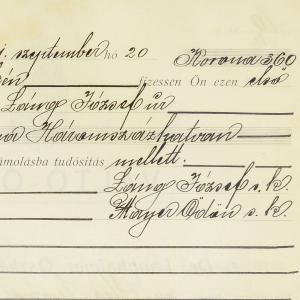 i. szeptember hó 20 Korona 360
én fizessen Ön ezen első
Láng József úr
Háromszázhatvan
ámolásba tudósítás mellett.
Láng József s. k.
Mayer Ödön s. k.